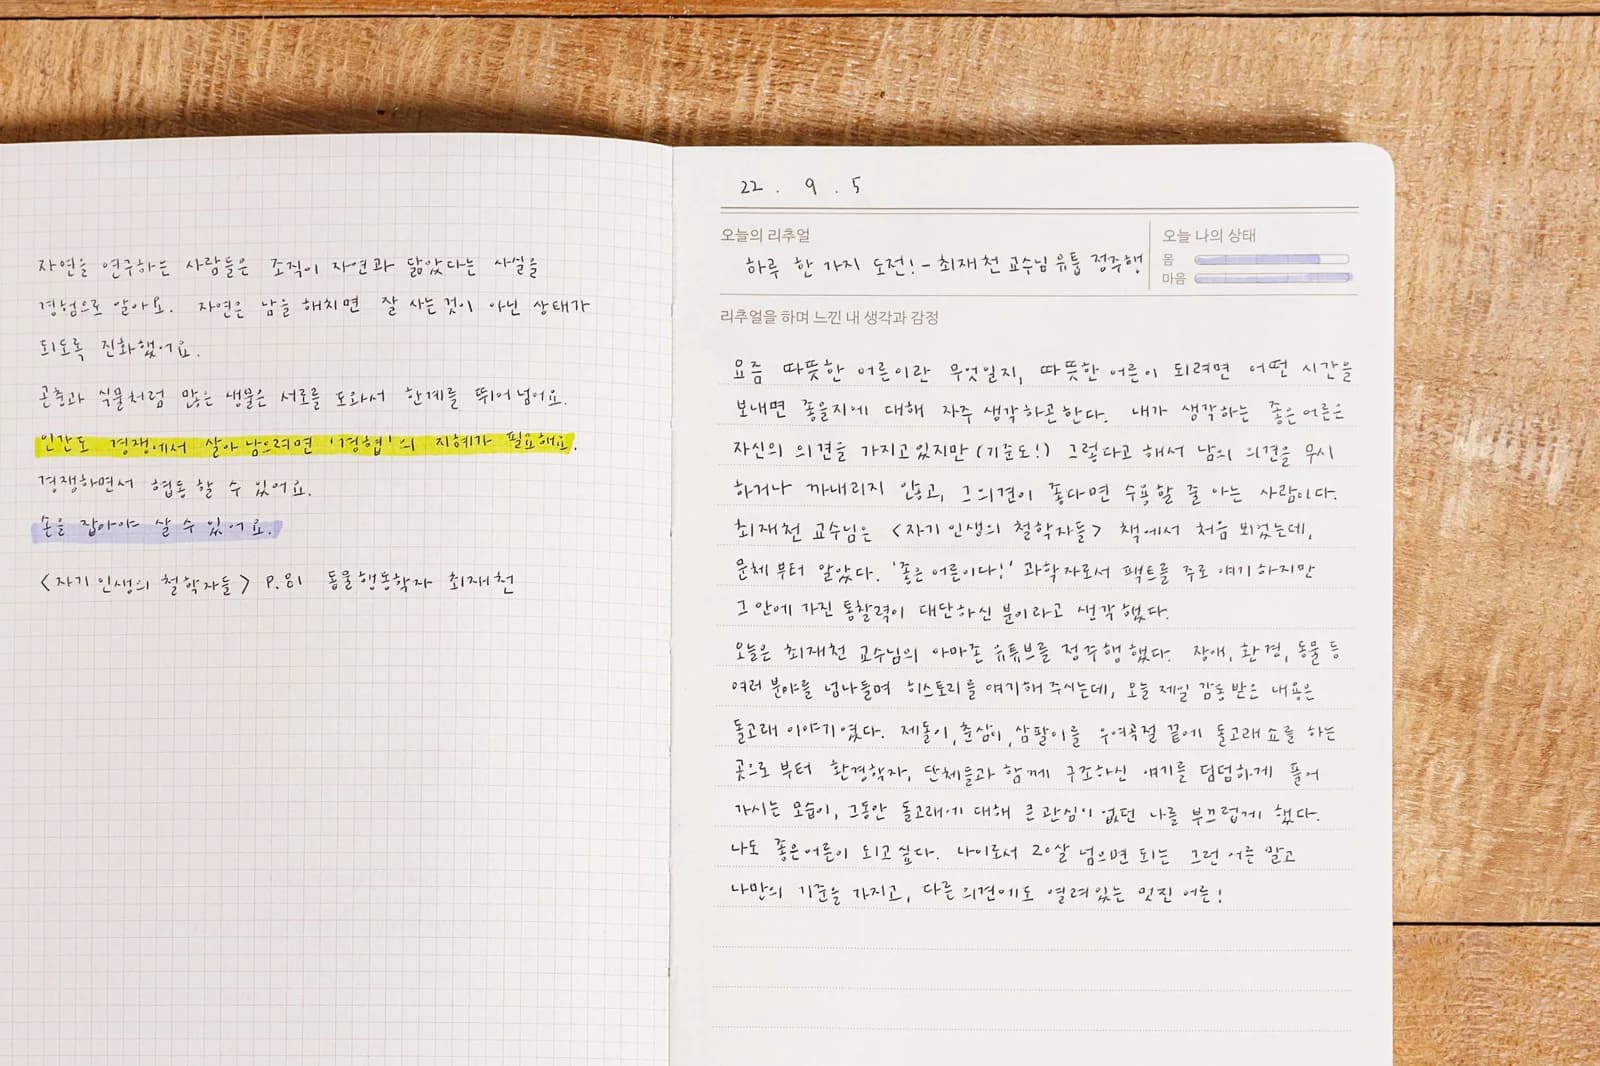 자연을 연구하는 사람들은 조직이 자연과 닮았다는 사실을
경험으로 알아요. 자연은 남을 해치면 잘 사는 것이 아닌 상태가
되도록 진화했어요.
곤충과 식물처럼 많은 생물은 서로를 도와서 한계를 뛰어넘어요.
인간도 경쟁에서 살아남으려면 '경협'의 지혜가 필요해요.
경쟁하면서 협동할 수 있어요.
손을 잡아야 살 수 있어요.
<자기 인생의 철학자들> P.81 동물행동학자 최재천
22 . 9 . 5
오늘의 리추얼
하루 한 가지 도전! - 최재천 교수님 유튭 정주행
오늘 나의 상태
몸
마음
리추얼을 하며 느낀 내 생각과 감정
요즘 따뜻한 어른이란 무엇일지, 따뜻한 어른이 되려면 어떤 시간을
보내면 좋을지에 대해 자주 생각하곤한다. 내가 생각하는 좋은어른은
자신의 의견을 가지고있지만(기준도!) 그렇다고 해서 남의 의견을 무시
하거나 까내리지 않고, 그의견이 좋다면 수용할 줄 아는 사람이다.
최재천 교수님은 <자기인생의 철학자들> 책에서 처음 뵈었는데,
문체부터 알았다. '좋은어른이다!' 과학자로서 팩트를 주로 얘기하지만
그 안에 가진 통찰력이 대단하신 분이라고 생각했다.
오늘은 최재천 교수님의 아마존 유튜브를 정주행했다. 장애, 환경, 동물 등
여러 분야를 넘나들며 히스토리를 얘기해주시는데, 오늘 제일 감동받은 내용은
돌고래 이야기였다. 제돌이, 춘삼이, 삼팔이를 우여곡절 끝에 돌고래쇼를 하는
곳으로부터 환경학자, 단체들과 함께 구조하신 얘기를 덤덤하게 풀어
가시는 모습이, 그동안 돌고래에 대해 큰관심이 없던 나를 부끄럽게 했다.
나도 좋은어른이 되고싶다. 나이로서 20살 넘으면 되는 그런 어른 말고
나만의 기준을 가지고, 다른의견에도 열려있는 멋진 어른!